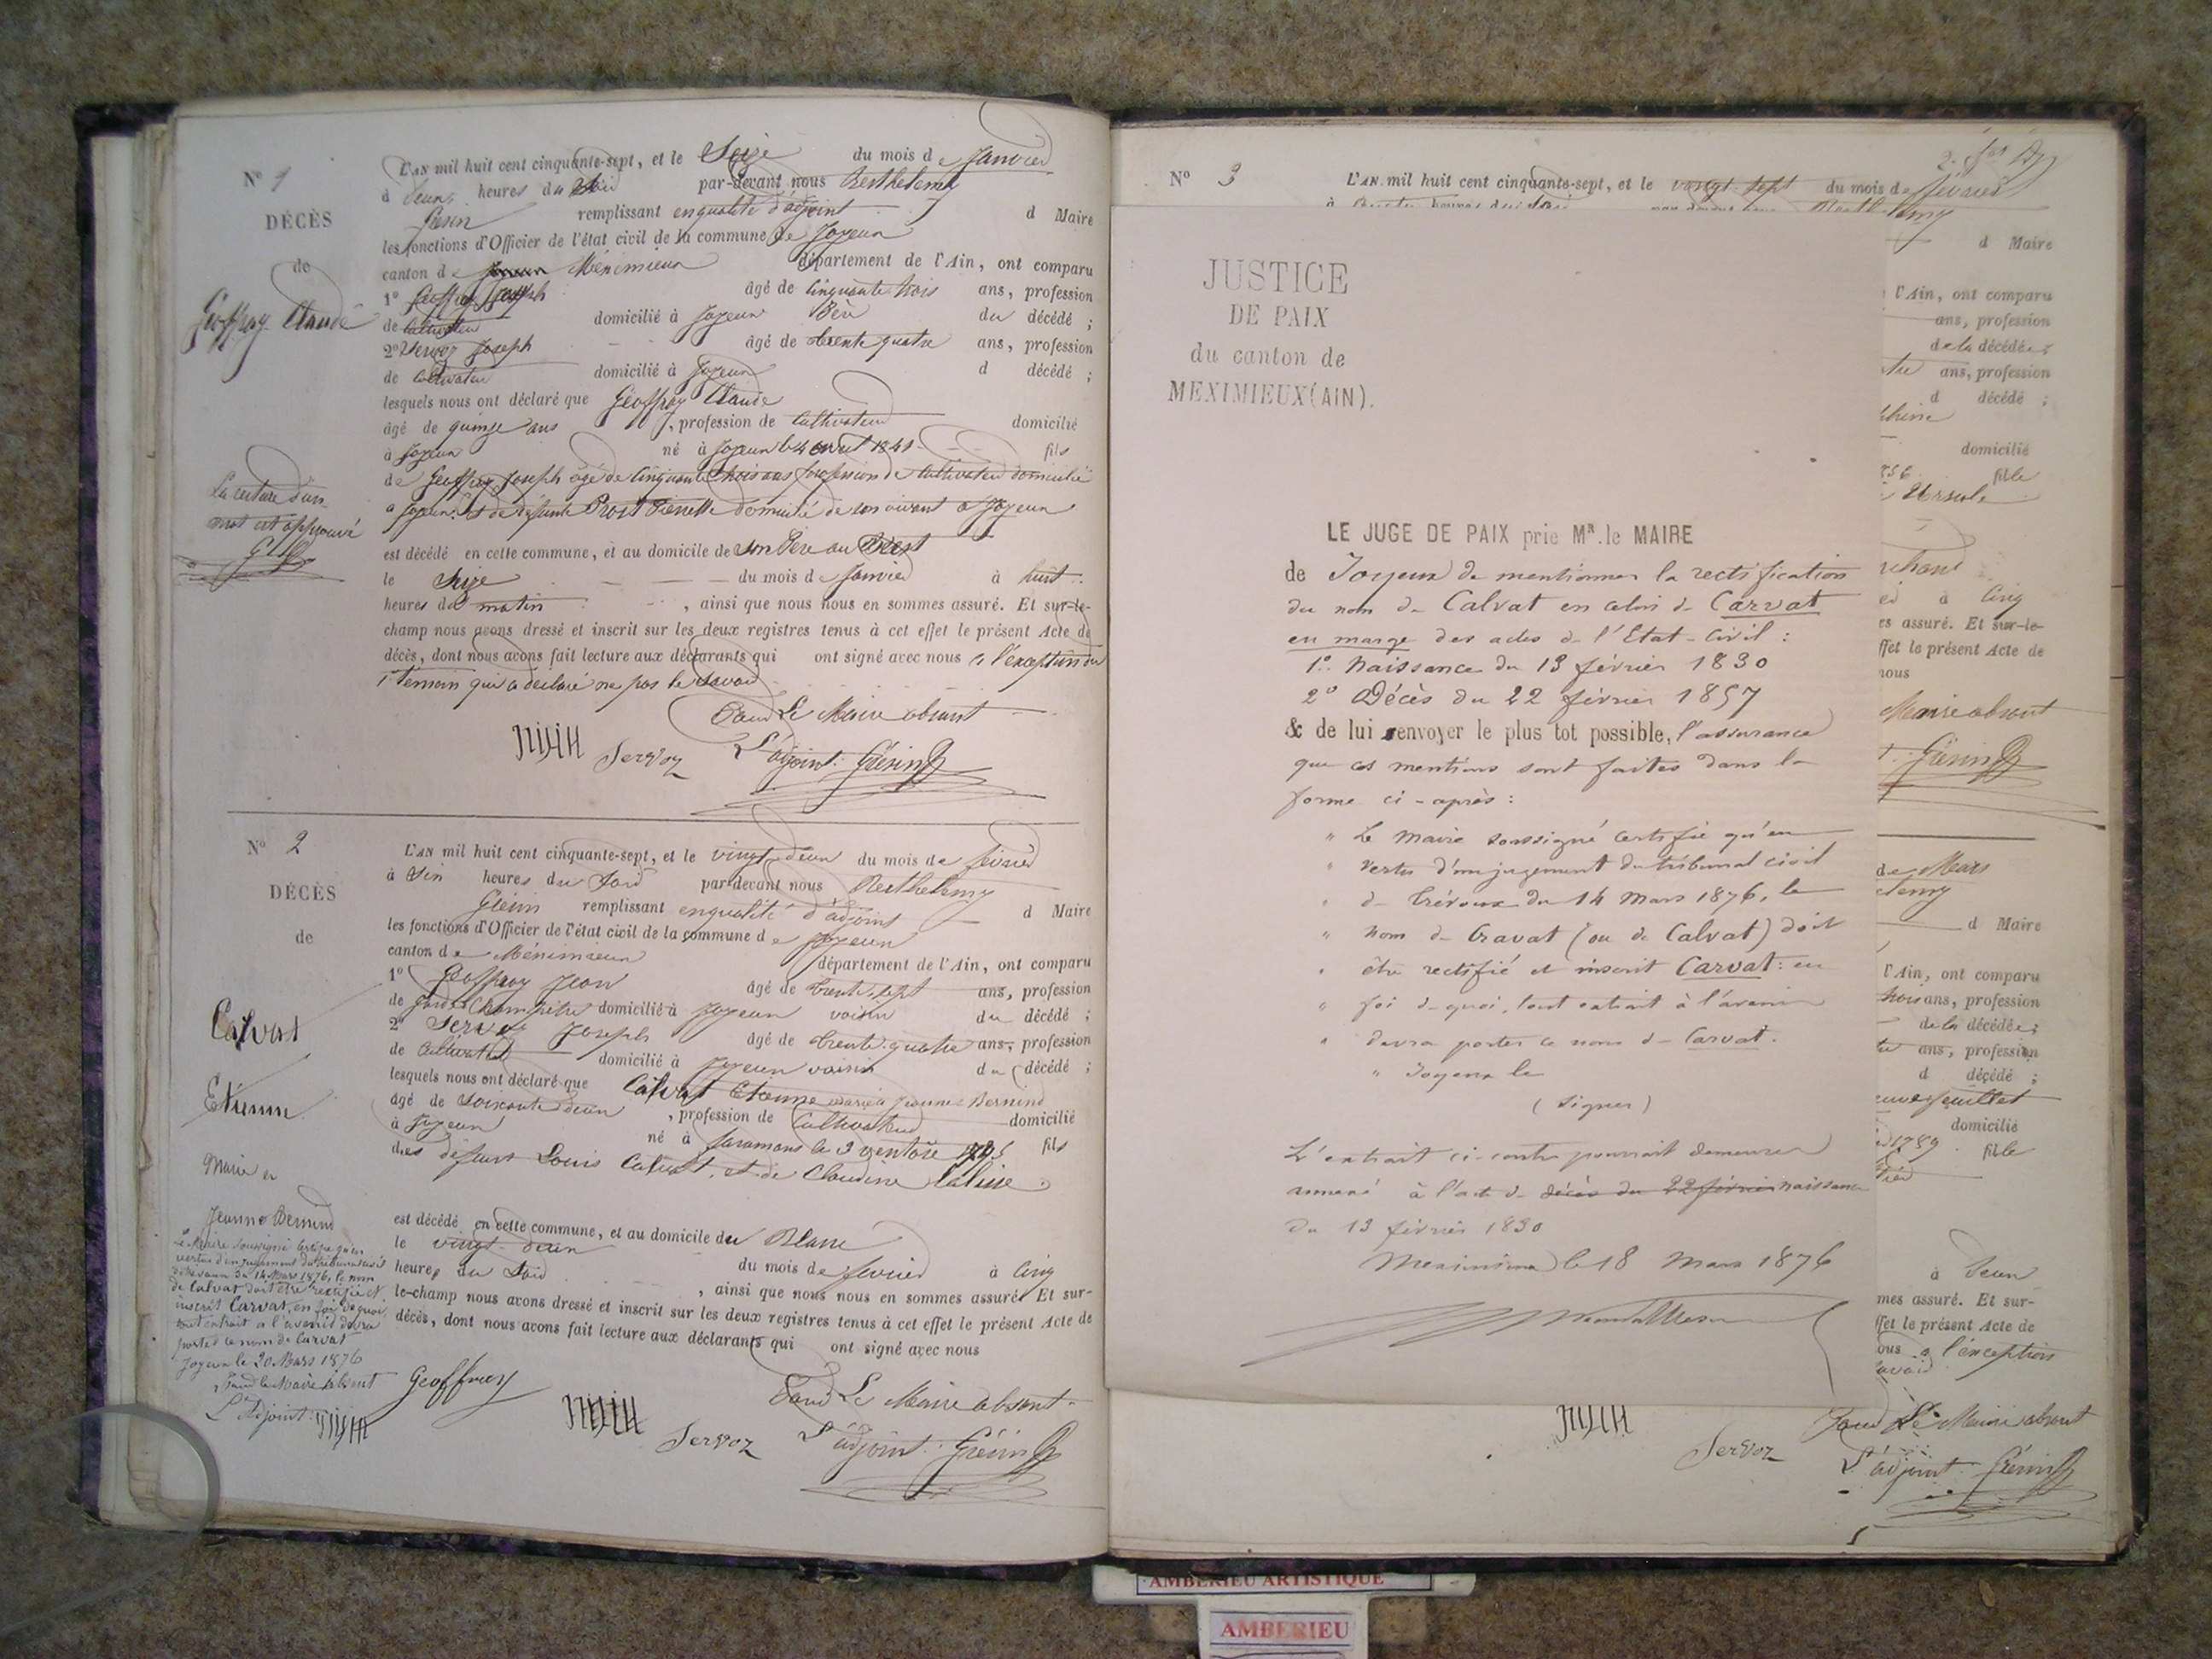 Nº 1
DÉCÈS
de
Geoffray Claude
La rature d'un
mot est approuvé
L'AN mil huit cent cinquante-sept, et le Seize du mois de Janvier
à deux heures du Soir par-devant nous Berthelemy
Grésin remplissant en qualité d'adjoint d Maire
les fonctions d'Officier de l'état civil de la commune de Joyeux
canton de Méximieux département de l'Ain, ont comparu
1º Geoffray Joseph âgé de Cinquante trois ans, profession
de Cultivateur domicilié à Joyeux Père du décédé ;
2º Servoz Joseph âgé de trente quatre ans, profession
de Cultivateur domicilié à Joyeux d décédé ;
lesquels nous ont déclaré que Geoffray Claude
âgé de quinze ans , profession de Cultivateur domicilié
à Joyeux né à Joyeux le 4 avril 1841 fils
de Geoffray Joseph âgé de Cinquante trois ans profession de Cultivateur domicilié
à Joyeux et de défunte Prost Pierrette domicilié de son vivant à Joyeux
est décédé en cette commune, et au domicile de Son Père au
le Seize du mois de Janvier à huit
heures du matin , ainsi que nous nous en sommes assuré. Et sur-le-
champ nous avons dressé et inscrit sur les deux registres tenus à cet effet le présent Acte de
décès, dont nous avons fait lecture aux déclarants qui ont signé avec nous à l'exception du
1er temoin qui a déclaré ne pas le Savoir
Pour Le Maire absent
Servoz L'adjoint: Grésin
Nº 2
DÉCÈS
de
Calvat
Etienne
Marié à
Jeanne Bernind
Le Maire soussigné certifie qu'en
vertu d'un jugement du tribunal civil
de Trévoux du 14 Mars 1876, le nom
de Calvat doit être rectifié et
inscrit Carvat, en foi de quoi
tout extrait à l'avenir devra
porter ce nom de Carvat
Joyeux le 20 Mars 1876
Pour le Maire absent
L'Adjoint:
L'AN mil huit cent cinquante-sept, et le vingt-deux du mois de février
à Six heures du Soir par-devant nous Berthelemy
Grésin remplissant en qualité d'adjoint d Maire
les fonctions d'Officier de l'état civil de la commune de Joyeux
canton de Méximieux département de l'Ain, ont comparu
1º Geoffray Jean âgé de trente-sept ans, profession
de garde Champêtre domicilié à Joyeux voisin du décédé ;
2º Servoz Joseph âgé de trente-quatre ans, profession
de Cultivateur domicilié à Joyeux voisin du décédé ;
lesquels nous ont déclaré que Calvat Etienne marié à Jeanne Bernind
âgé de Soixante deux , profession de Cultivateur domicilié
à Joyeux né à faramans le 3 ventose fils
des défunt Louis Calvat, et de Claudine
est décédé en cette commune, et au domicile du Blanc
le vingt-deux du mois de fevrier à Cinq
heures du Soir , ainsi que nous nous en sommes assuré. Et sur-
le-champ nous avons dressé et inscrit sur les deux registres tenus à cet effet le présent Acte de
décès, dont nous avons fait lecture aux déclarants qui ont signé avec nous
Geoffray Pour Le Maire absent
Servoz L'adjoint: Grésin
Nº 3
L'AN mil huit cent cinquante-sept, et le vingt-sept du mois de février
JUSTICE
DE PAIX
du canton de
MEXIMIEUX (AIN).
LE JUGE DE PAIX prie Mr. le MAIRE
de Joyeux de mentionner la rectification
du nom de Calvat en celui de Carvat
en marge des actes de l'Etat-Civil :
1º Naissance du 13 février 1830
2º Décès du 22 février 1857
& de lui renvoyer le plus tot possible, l'assurance
que ces mentions sont faites dans la
forme ci-après :
" Le Maire soussigné certifie qu'en
" vertu d'un jugement du tribunal civil
" de Trévoux du 14 Mars 1876, le
" nom de Cravat (ou de Calvat) doit
" être rectifié et inscrit Carvat: en
" foi de quoi, tout extrait à l'avenir
" devra porter ce nom de Carvat.
" Joyeux le
(Signer)
L'extrait ci-contre pourrait demeurer
annexé à l'acte de décès du 22 février naissance
du 13 février 1830
Meximieux le 18 Mars 1876
d Maire
l'Ain, ont comparu
ans, profession
de la décédée ;
ans, profession
d décédé ;
domicilié
fille
Ursule
à Cinq
es assuré. Et sur-le-
ffet le présent Acte de
nous
Maire absent
Grésin
de Mars
d Maire
l'Ain, ont comparu
trois ans, profession
de la décédée ;
ans, profession
d décédé ;
domicilié
1789 fille
à deux
mes assuré. Et sur-
ffet le présent Acte de
ous à l'exception
Pour Le Maire absent
Servoz L'adjoint: Grésin
AMBERIEU ARTISTIQUE
AMBERIEU